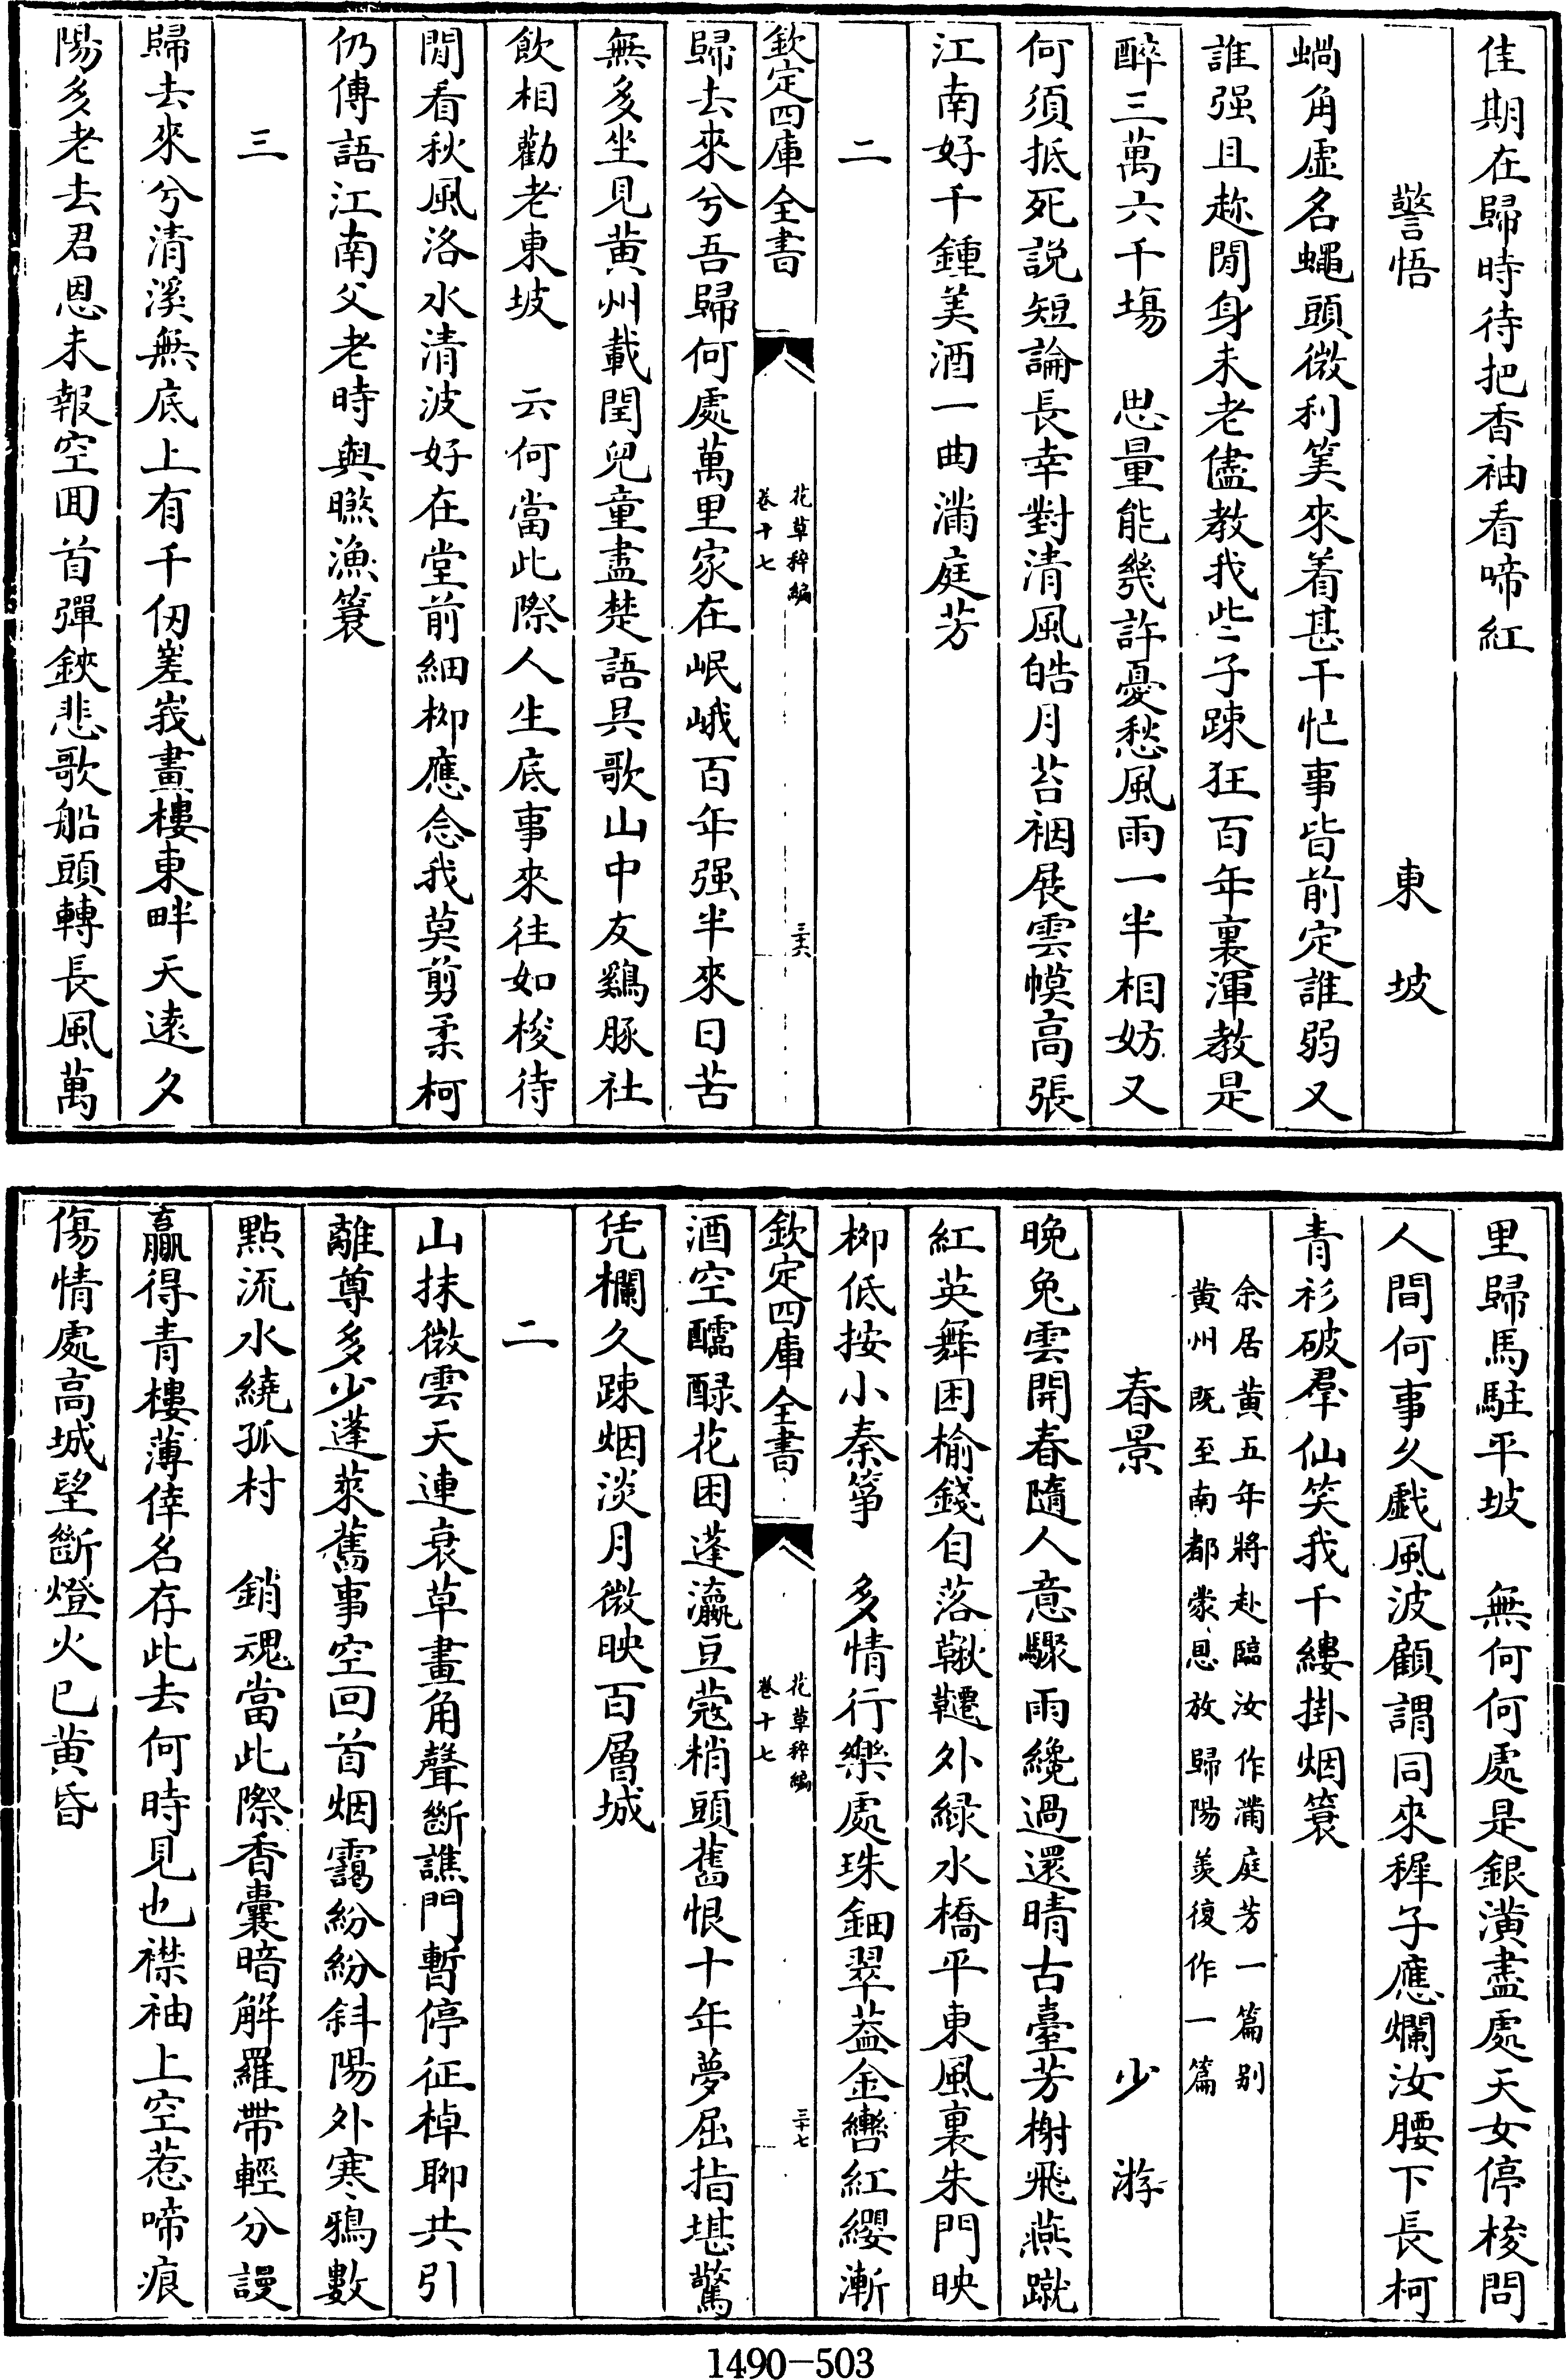 佳期在歸時待把香袖看啼紅
警悟　東坡
蝸角虛名蠅頭微利筭來着甚干忙事皆前定誰弱又
誰强且趂閒身未老儘教我些子踈狂百年裏渾教是
醉三萬六千塲　思量能幾許憂愁風雨一半相妨又
何須抵死説短論長幸對清風皓月苔裀展雲幙高張
江南好千鍾美酒一曲滿庭芳
二
欽定四庫全書
花草稡編
卷十七
三十六
歸去來兮吾歸何處萬里家在岷峨百年强半來日苦
無多坐見黄州載閏兒童盡楚語呉歌山中友鷄豚社
飲相勸老東坡　云何當此際人生底事來徃如梭待
閒看秋風洛水清波好在堂前細栁應念我莫剪柔柯
仍傳語江南父老時與曬漁簑
三
歸去來兮清溪無底上有千仭嵳峩畫樓東畔天逺夕
陽多老去君恩未報空囬首彈鋏悲歌船頭轉長風萬
里歸馬駐平坡　無何何處是銀潢盡處天女停梭問
人間何事久戯風波顧謂同來穉子應爛汝腰下長柯
青衫破羣仙笑我千縷掛烟簑
余居黄五年將赴臨汝作滿庭芳一篇别
黄州既至南都蒙恩放歸陽羡復作一篇
春景　少游
晚兔雲開春隨人意驟雨纔過還晴古臺芳榭飛燕蹴
紅英舞困榆錢自落鞦韆外緑水橋平東風裏朱門映
栁低按小秦筝　多情行樂處珠鈿翠葢金轡紅纓漸
欽定四庫全書
花草稡編
卷十七
三十七
酒空醽醁花困蓬瀛豆蔻梢頭舊恨十年夢屈指堪驚
凭欄久踈烟淡月微映百層城
二
山抹微雲天連衰草畫角聲斷譙門暫停征棹聊共引
離尊多少蓬萊舊事空回首烟靄紛紛斜陽外寒鴉數
點流水繞孤村　銷魂當此際香囊暗解羅帶輕分謾
贏得青樓薄倖名存此去何時見也襟袖上空惹啼痕
傷情處髙城望斷燈火已黄昏
1490-503